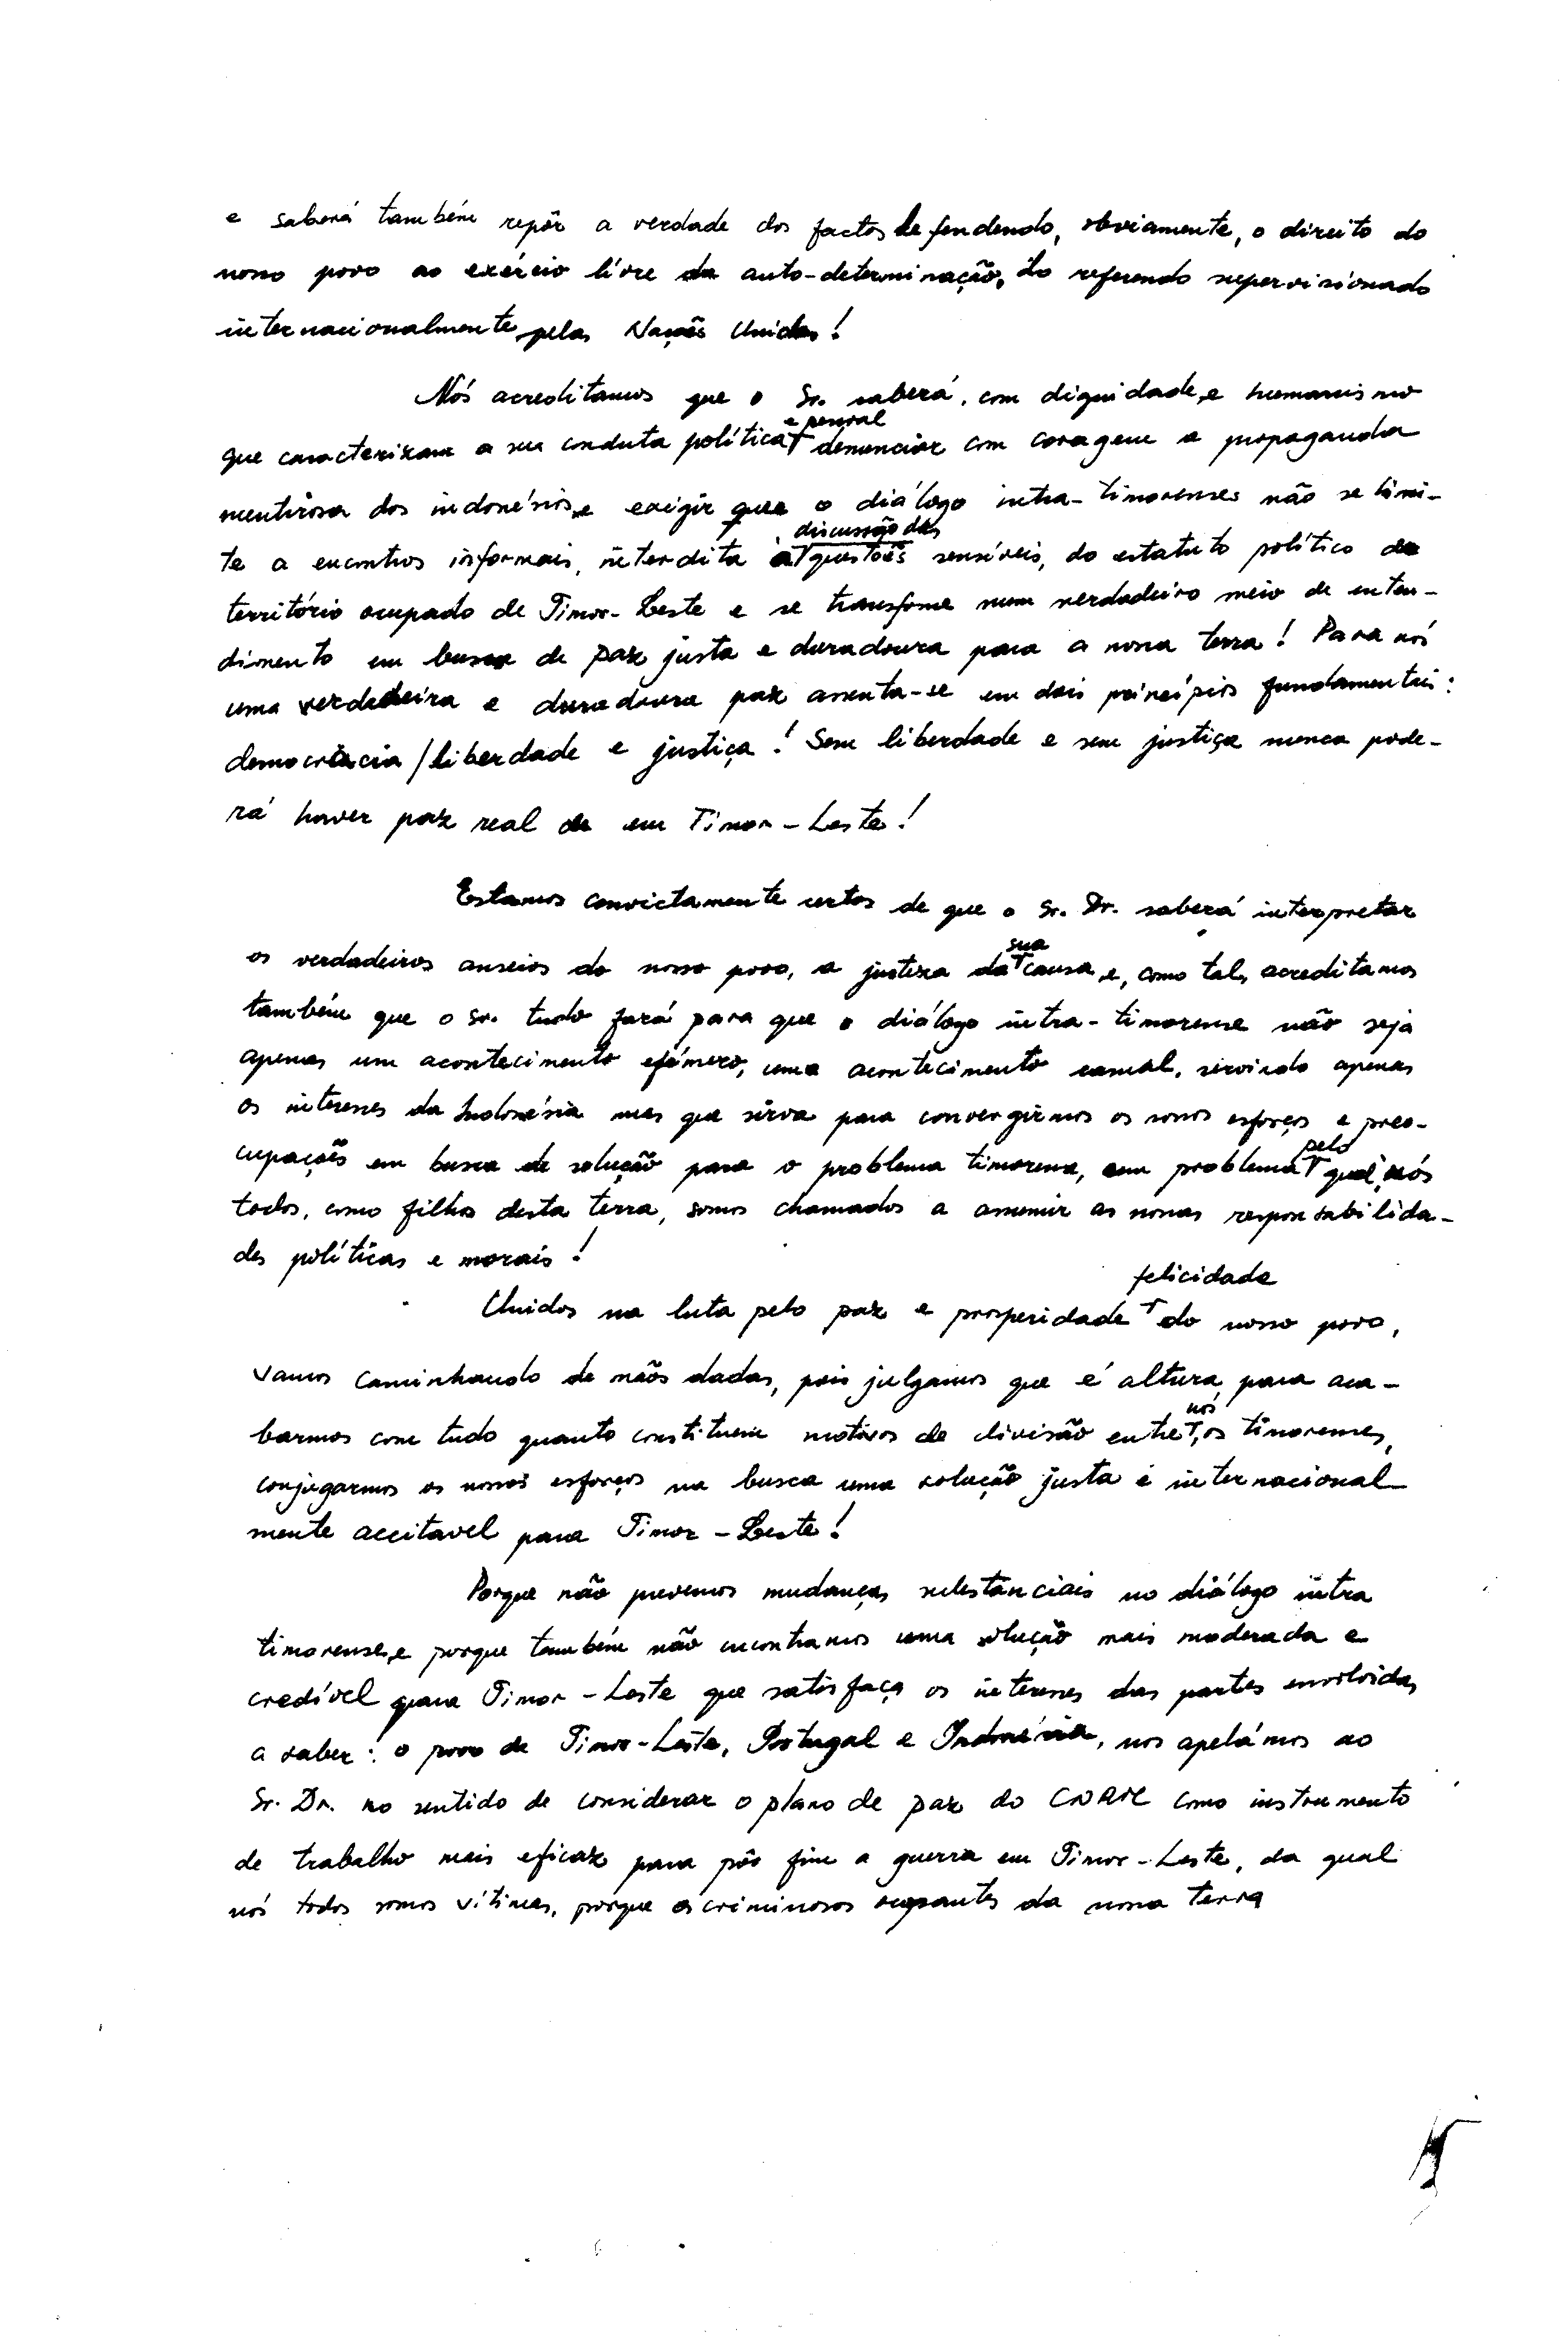 e saberá também repôr a verdade dos factos defendendo, obviamente, o direito do
nosso povo ao exércio livre da auto-determinação, do referendo supervisionado
internacionalmente pelas Nações Unidas!
Nós acreditamos que o Sr. saberá, com dignidade e humanismo
que caracterizam a sua conduta política e pessoal denunciar com coragem a propaganda
mentirosa dos indonésios e exigir que o diálogo intra-timorenses não se limi-
te a encontros informais, interdita à discussão das questões sensíveis, do estatuto político do
território ocupado de Timor-Leste e se transforme num verdadeiro meio de enten-
dimento em busca de paz justa e duradoura para a nossa terra! Para nós
uma verdadeira e duradoura paz assenta-se em dois princípios fundamentais:
democracia/liberdade e justiça! Sem liberdade e sem justiça nunca pode-
rá haver paz real de em Timor-Leste!
Estamos convictamente certos de que o Sr. Dr. saberá interpretar
os verdadeiros anseios do nosso povo, a justeza da sua causa e, como tal, acreditamos
também que o Sr. tudo fará para que o diálogo intra-timorense não seja
apenas um acontecimento efémero, uma acontecimento casual, servindo apenas
os interesses da Indonésia mas que sirva para convergirmos os nossos esforços e preo-
cupações em busca de solução para o problema timorense, um problema pelo qual, nós
todos, como filhos desta terra, somos chamados a assumir as nossas responsabilida-
des políticas e morais!
Unidos na luta pelo paz e prosperidade felicidade do nosso povo,
vamos caminhando de mãos dadas, pois julgamos que é altura para aca-
barmos com tudo quanto constituem motivos de divisão entre nós, os timorenses,
conjugarmos os nossos esforços na busca uma solução justa e internacional
mente aceitavel para Timor-Leste!
Porque não prevemos mudanças substânciais no diálogo intra
timorense, e porque também não encontramos uma solução mais moderada e
credível para Timor-Leste que satisfaça os interesses das partes envolvidas
a saber: o povo de Timor-Leste, Portugal e Indonésia, nos apelámos ao
Sr. Dr. no sentido de considerar o plano de paz do CNRM como instrumento
de trabalho mais eficaz para pôr fim a guerra em Timor-Leste, da qual
nós todos somos vítimas, porque os criminosos ocupantes da nossa terra